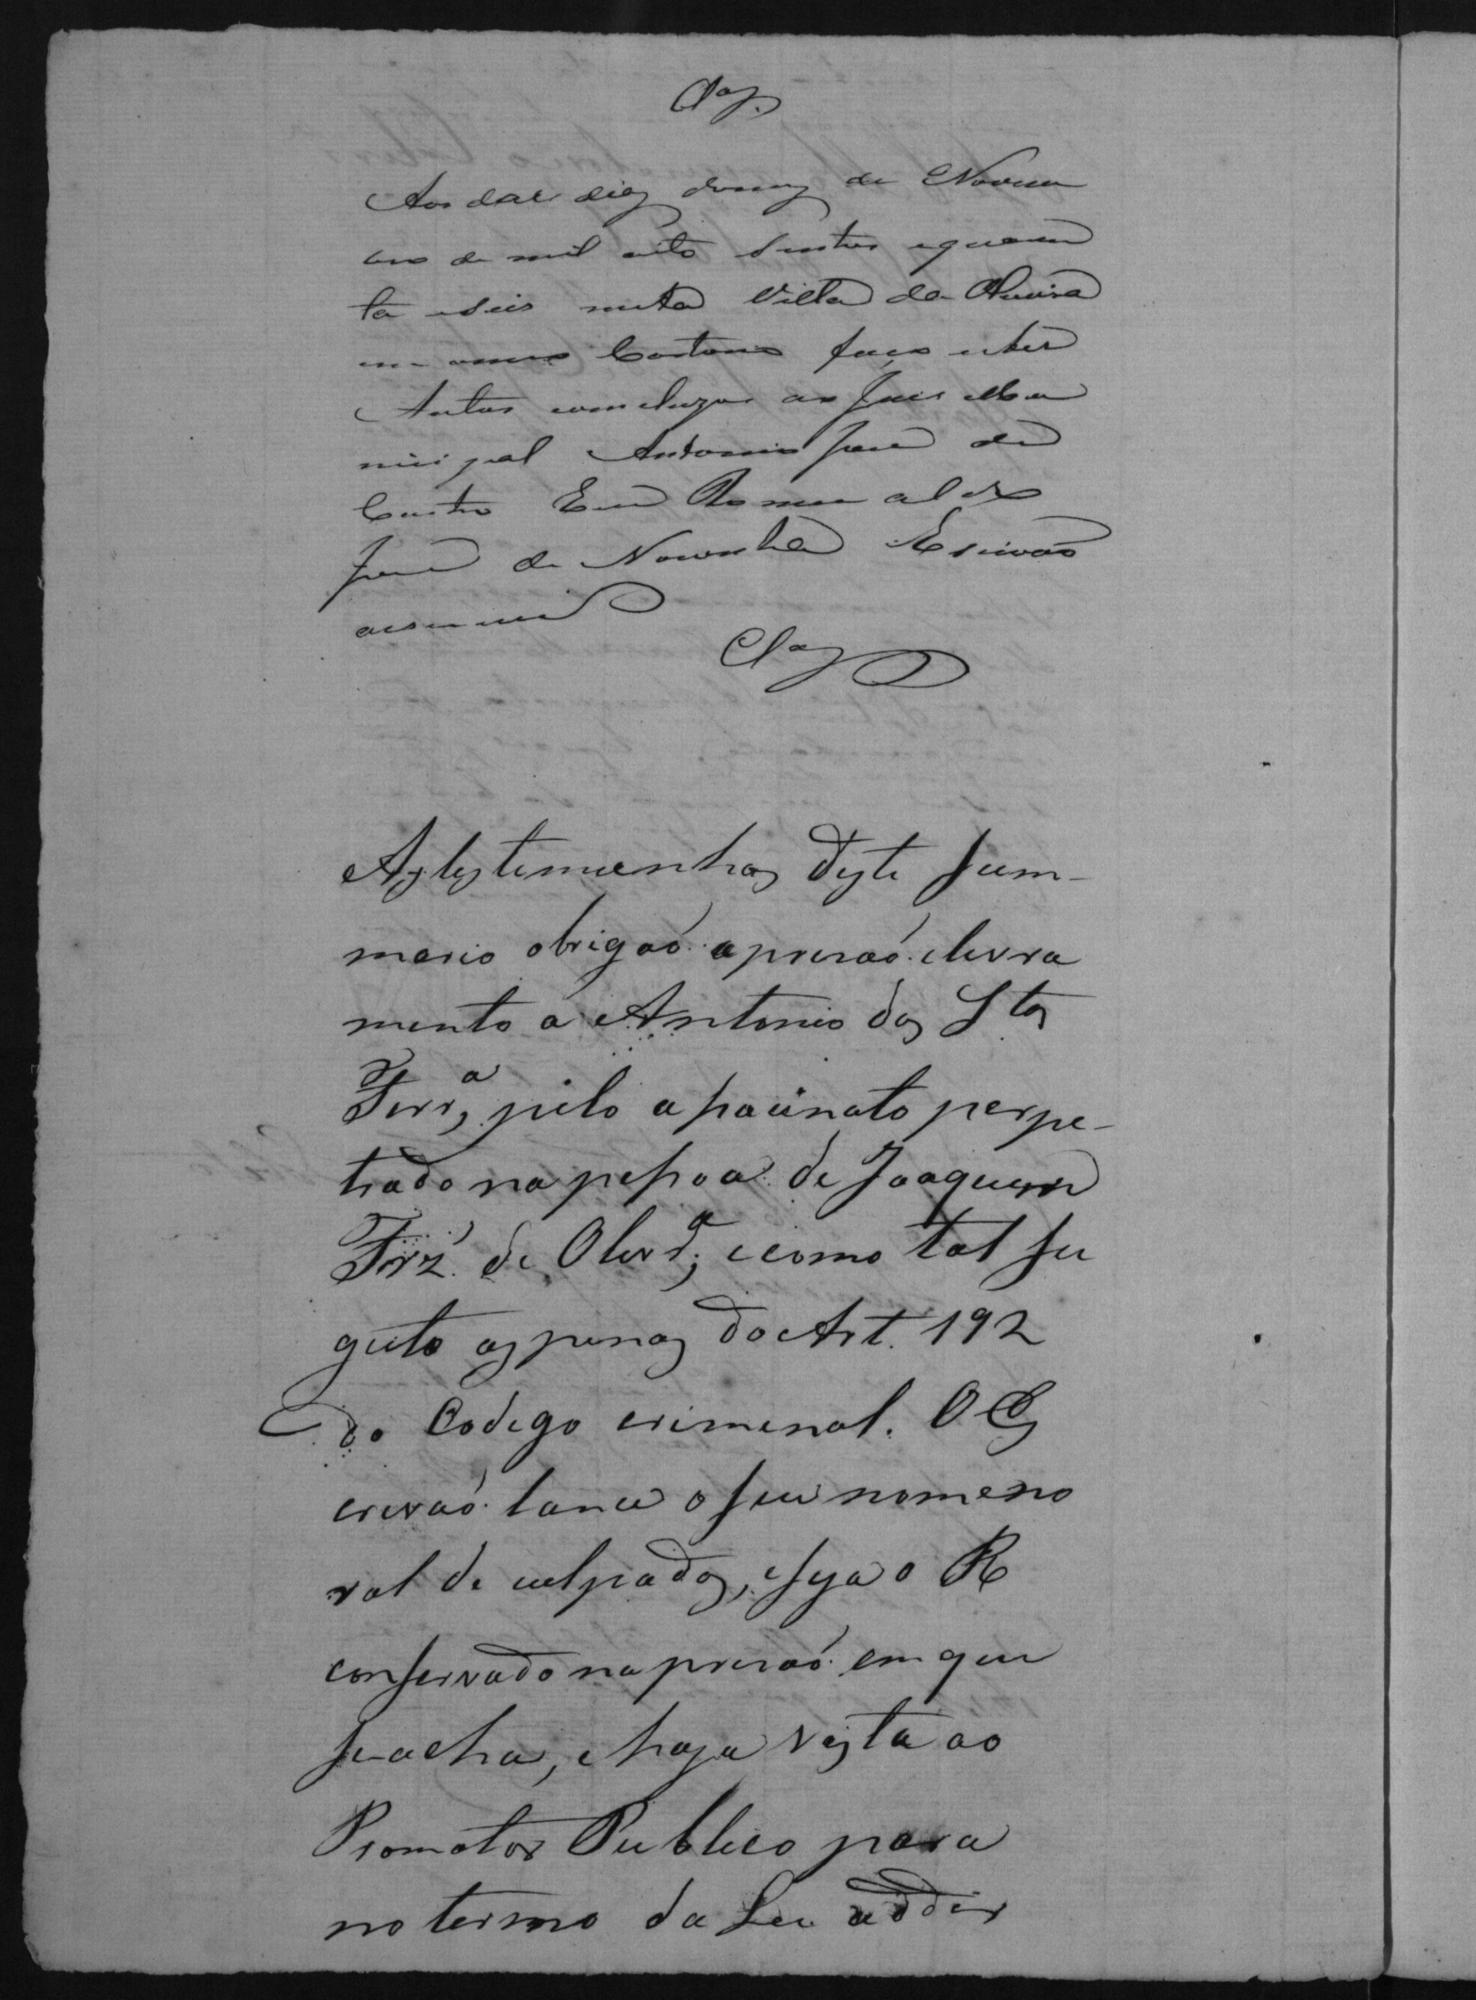 Clas.
Aos dose dias do mez de Novem
bro de mil oito sentos equaren
ta eseis nesta Villa da Oliveira
em omeu Cartorio faço estes
Autos comcluzos ao Juis Mu
nicipal Antonio José de
Castro Eu Romualdo
José de Noronha Escrivão
oescrevi
Clas
As testemunhas deste sum-
mario obrigaó aprizaó elivra
mento a Antonio dos Stos
Ferra, pelo assacinato perpe-
trado na pessoa de Joaquim
Frz' de Olivra, ecomo tal su
geito as penas do Art. 192
do Codego criminal. O Es
crivaó lance oseu nome no
rol de culpados, eseja o R
conservado na prizaó em que
se acha, e haja vista ao
Promotor Publico para
no termo da Lei addir